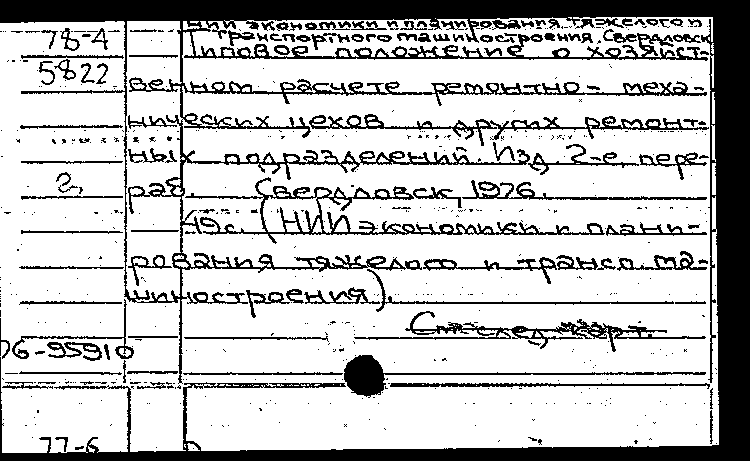 НИИ экономики и планирования тяжелого и
транспортного машиностроения. Свердловск
78-4
Типовое положение о хозяйст-
5822
венном расчете ремонтно-меха-
нических цехов и других ремонт-
ных подразделений. Изд. 2-е, пере-
2,
раб. Свердловск, 1976.
49с. (НИИ экономики и плани-
рования тяжелого и трансп. ма-
шиностроения).
См. след. карт.
76-95910
77-6